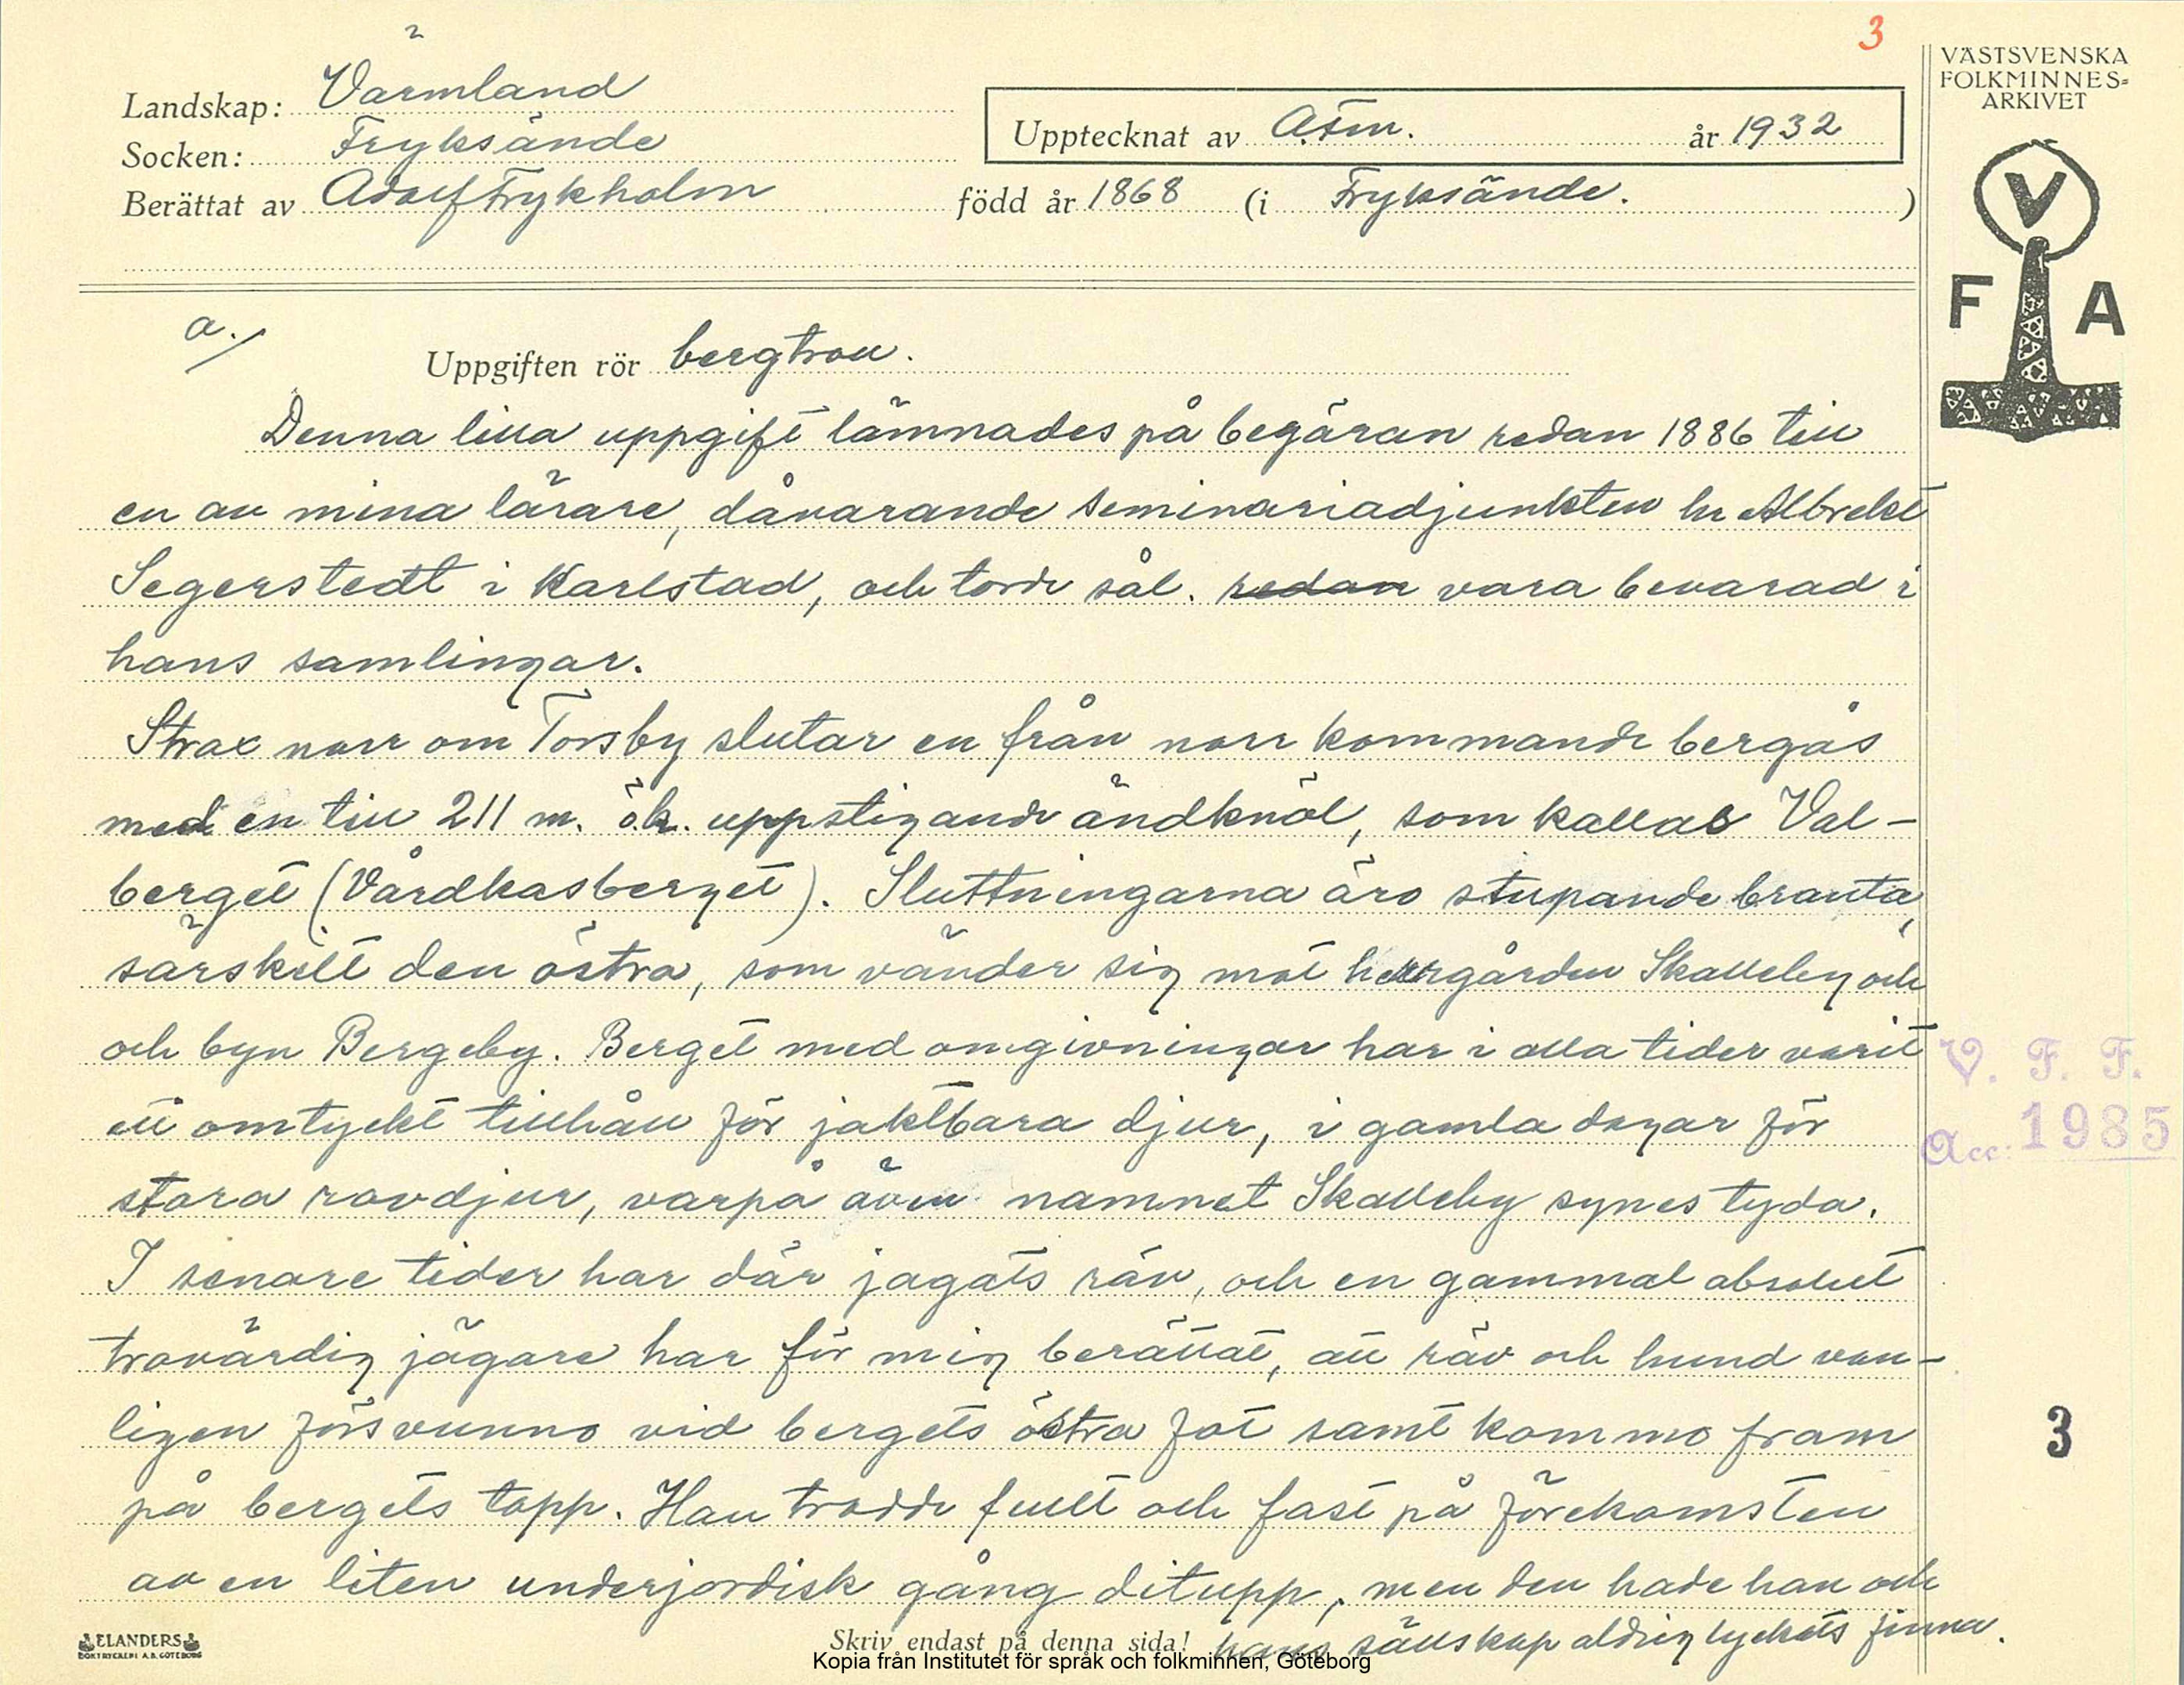 3
VÄSTSVENSKA
FOLKMINNES=
ARKIVET
Landskap: Värmland
Upptecknat av A.Fm. år 1932
Socken: Fryksände
Berättat av Adolf Frykholm född år 1868 (i Fryksände. )
V
F A
a./
Uppgiften rör bergtron.
Denna lilla uppgift lämnades på begäran redan 1886 till
en av mina lärare, dåvarande seminariadjunkten hr Albrekt
Segerstedt i Karlstad, och torde sål. redan vara bevarad i
hans samlingar.
Strax norr om Torsby slutar en från norr kommande bergås
med en till 211 m. ö.h. uppstigande ändknöl, som kallas Val-
berget (Vårdkasberget). Sluttningarna äro stupande branta,
särskilt den östra, som vänder sig mot herrgården Skalleby och
och byn Bergeby. Berget med omgivningar har i alla tider varit
ett omtyckt tillhåll för jaktbara djur, i gamla dagar för
V. F. F.
Acc: 1985
stora rovdjur, varpå även namnet Skalleby synes tyda.
I senare tider har där jagats räv, och en gammal absolut
trovärdig jägare har för mig berättat, att räv och hund van-
ligen försvunno vid bergets östra fot samt kommo fram
3
på bergets topp. Han trodde fullt och fast på förekomsten
av en liten underjordisk gång ditupp, men den hade han och
hans sällskap aldrig lyckats finna.
ELANDERS
BOKTRYCKERI A.B. GÖTEBORG
Skriv endast på denna sida!
Kopia från Institutet för språk och folkminnen, Göteborg